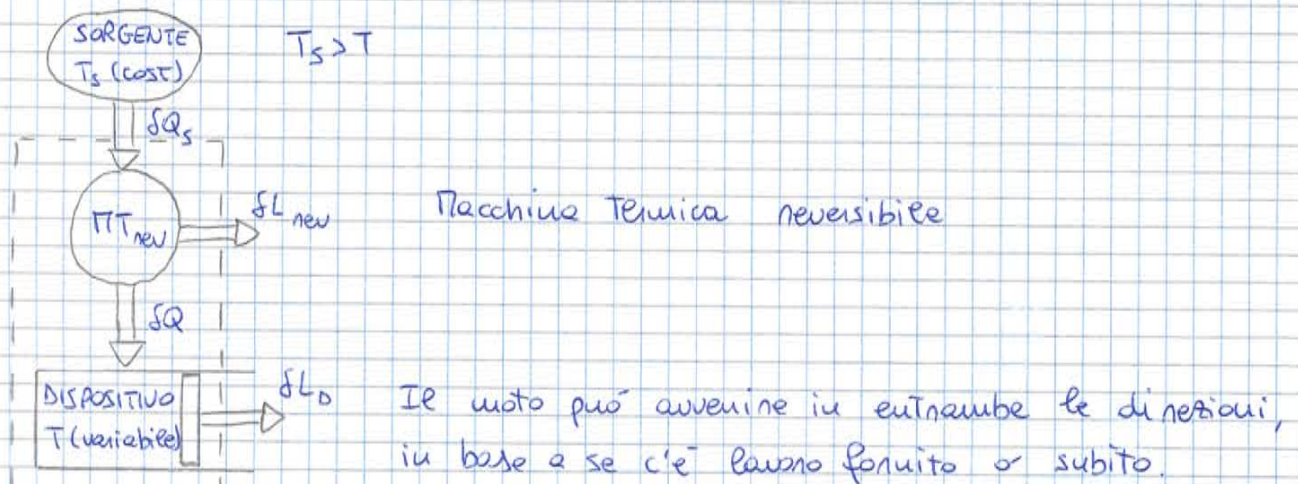 SORGENTE
T_S (COST)
T_S > T
δQ_S
MT_rev
δL_rev
Macchina Termica reversibile
δQ
DISPOSITIVO
T (variabile)
δL_D
Il moto può avvenire in entrambe le direzioni,
in base a se c'è lavoro fornito o subito.